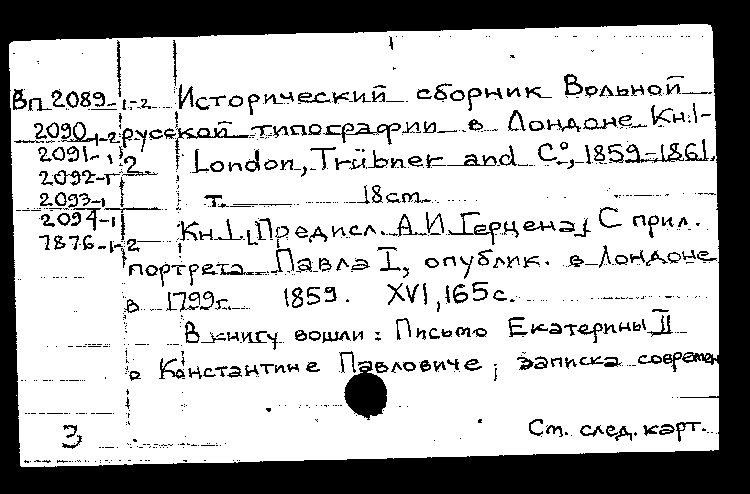 Вп 2089-1-2 Исторический сборник Вольной
2090-1-2 русской типографии в Лондоне Кн.1-
2091-1 2 London, Trübner and C°, 1859-1861.
2092-1
2093-1 т. 18 cm.
2094-1 Кн. 1, [Предисл. А.И. Герцена]. С прил.
7876-1-2 портрета Павла I, опублик. в Лондоне
в 1799г. 1859. XVI, 165 с.
В книгу вошли: Письмо Екатерины II
о Константине Павловиче; записка современ
3 См. след. карт.